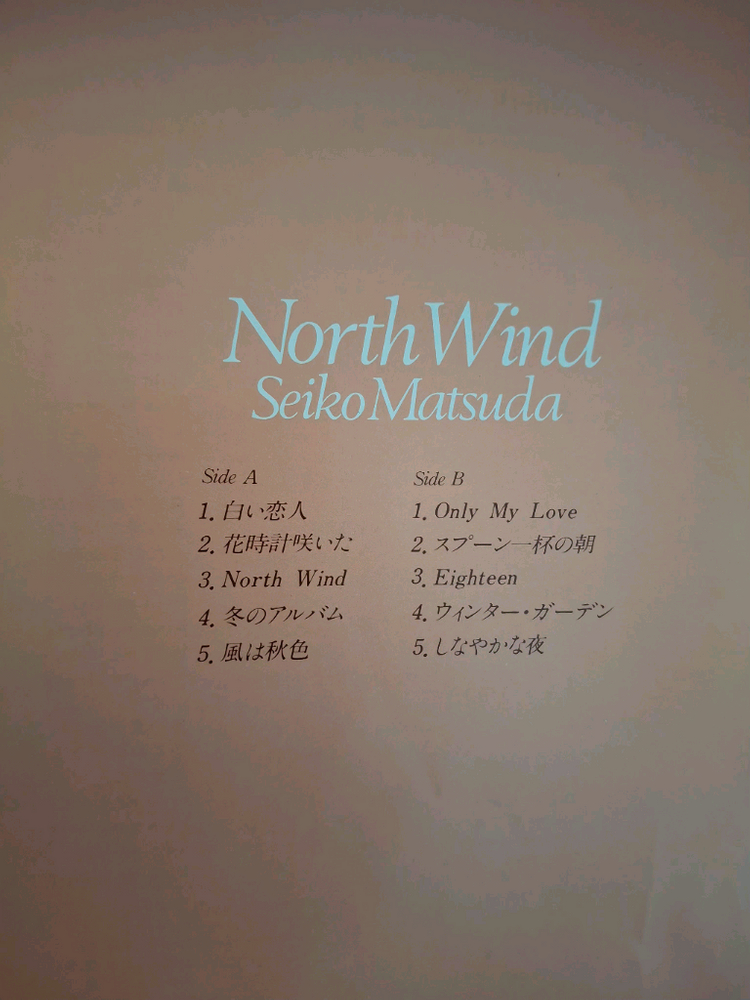 North Wind
Seiko Matsuda
Side A
1. 白い恋人
2. 花時計咲いた
3. North Wind
4. 冬のアルバム
5. 風は秋色
Side B
1. Only My Love
2. スプーン一杯の朝
3. Eighteen
4. ウィンター・ガーデン
5. しなやかな夜